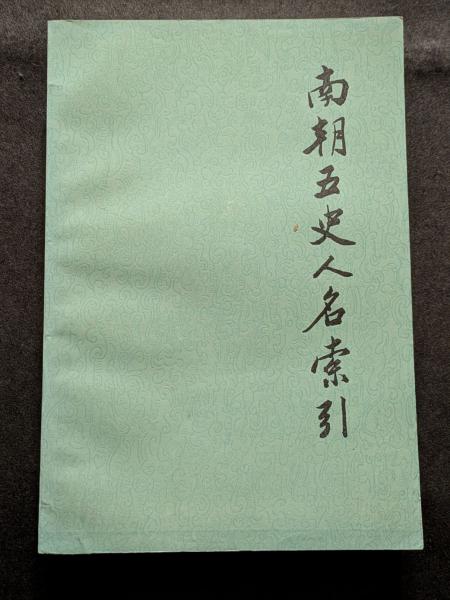 南朝五史人名索引